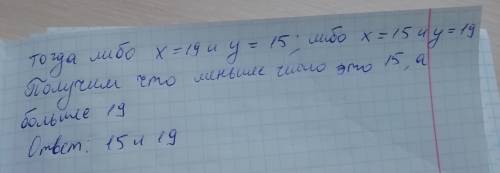 тогда либо x = 19 и y = 15; либо x = 15 и y = 19
Получим что меньшее число это 15, а
большее 19
Ответ: 15 и 19